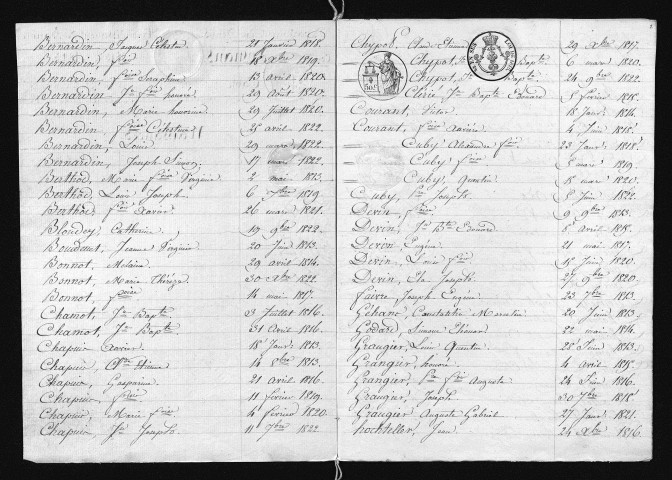 Bernardin, Jacques Célestin 21 Janvier 1818.
Bernardin, fçois 18 Xbre 1819.
Bernardin, fçoise Séraphine 13 avril 1820.
Bernardin Jn fçois honoré 29 Août 1820.
Bernardin, Marie honorine 29 Juillet 1820.
Bernardin, fçoise Célestine 25 avril 1822.
Bernardin, Louis 29 mars 1822.
Bernardin, Joseph 17 mars 1822.
Berthod, Marie fçoise Virginie 2 mai 1813.
Berthod, Joseph 6 7bre 1819
Berthod, fçois Xavier 26 mars 1821.
Bloudey, Catherine 19 9bre 1822.
Boudaut, Jeanne Virginie 20 Juin 1813.
Bonnot, Mélanie 29 avril 1814.
Bonnot, Marie Thérèze 30 Xbre 1822.
Bonnot, fçoise 14 mai 1817.
Chamot, Jn Bapte 3 Juillet 1816.
Chamot, Jn Bapte 31 Août 1816.
Chapuis Xavier 18 Janv. 1813.
Chapuis, Etienne 14 8bre 1813.
Chapuis, Gasparine 21 avril 1816
Chapuis, fçois 11 février 1819.
Chapuis, Marie fçoise 4 février 1820.
Chapuis, Jn Joseph 11 7bre 1822
Chypot, Etienne 29 Xbre 1817.
Chypot, Bapte 6 mars 1820.
Chypot, Bapte 24 9bre 1822.
Cléric Jn Bapte Edouard 5 février 1818.
Courant, Victor 18 Janv. 1814.
Courant, fçoise Xavier 4 Juin 1818.
Cuby Alexandre fçois 23 Janv. 1818.
Cuby fçois mars 1819.
Cuby, Quentin 15 mars 1820.
Cuby, Jn Joseph 5 Juin 1822.
Devin, fçois 9 9bre 1813.
Devin, Jn Bte Edouard 8 avril 1815.
Devin Eugène 21 mai 1817.
Devin, Louis fçois 15 Juin 1820.
Devin, Joseph 27 9bre 1820.
Faivre Joseph Eugène 23 7bre 1813.
Géhant, Constantin 20 Juin 1813.
Godard, Simon 22 mai 1814.
Grangier, Louis Quentin 28 Juin 1813.
Grangier, honoré 4 avril 1815.
Grangier, fçois Auguste 24 Juin 1816.
Grangier, Joseph 30 7bre 1818.
Grangier Auguste Gabriel 27 Janv. 1821.
hockteller, Jean 24 Xbre 1816